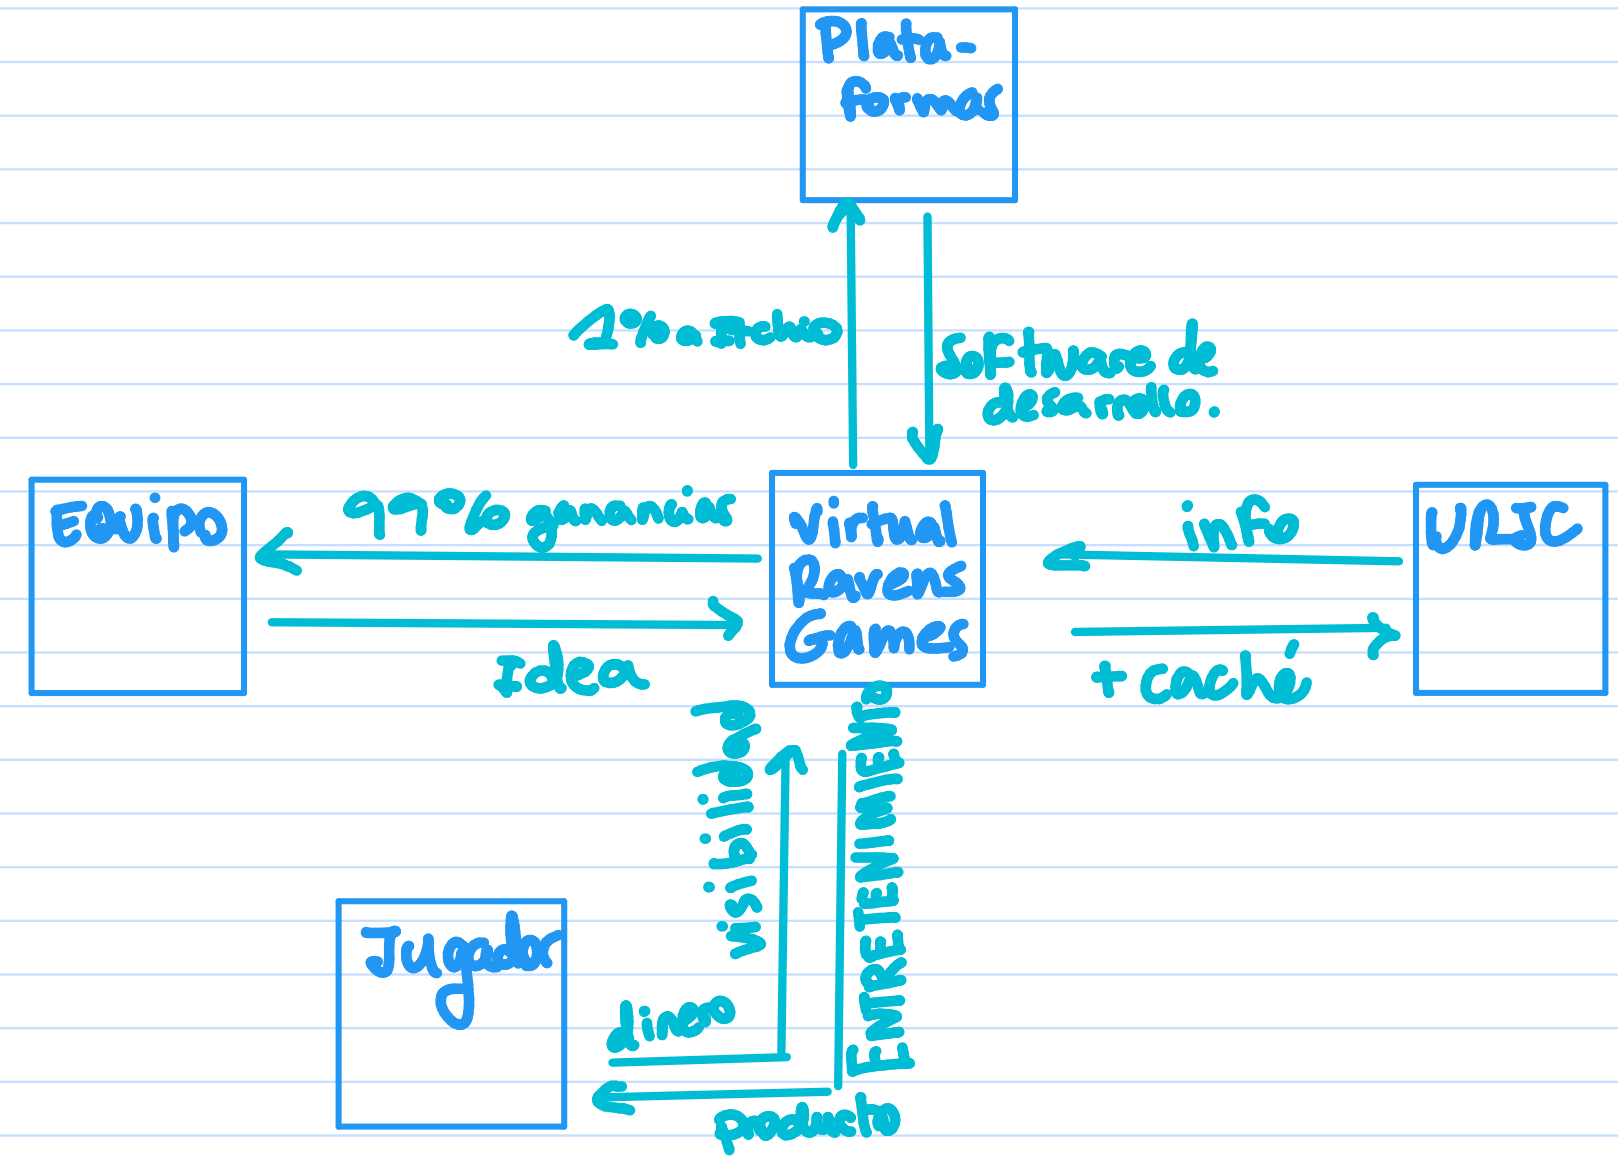 Plata-
formas
1% a Itchio
Software de
desarrollo.
Equipo
99% ganancias
Idea
Virtual
Ravens
Games
info
+ caché
URJC
visibilidad
ENTRETENIMIENTO
Jugador
dinero
producto